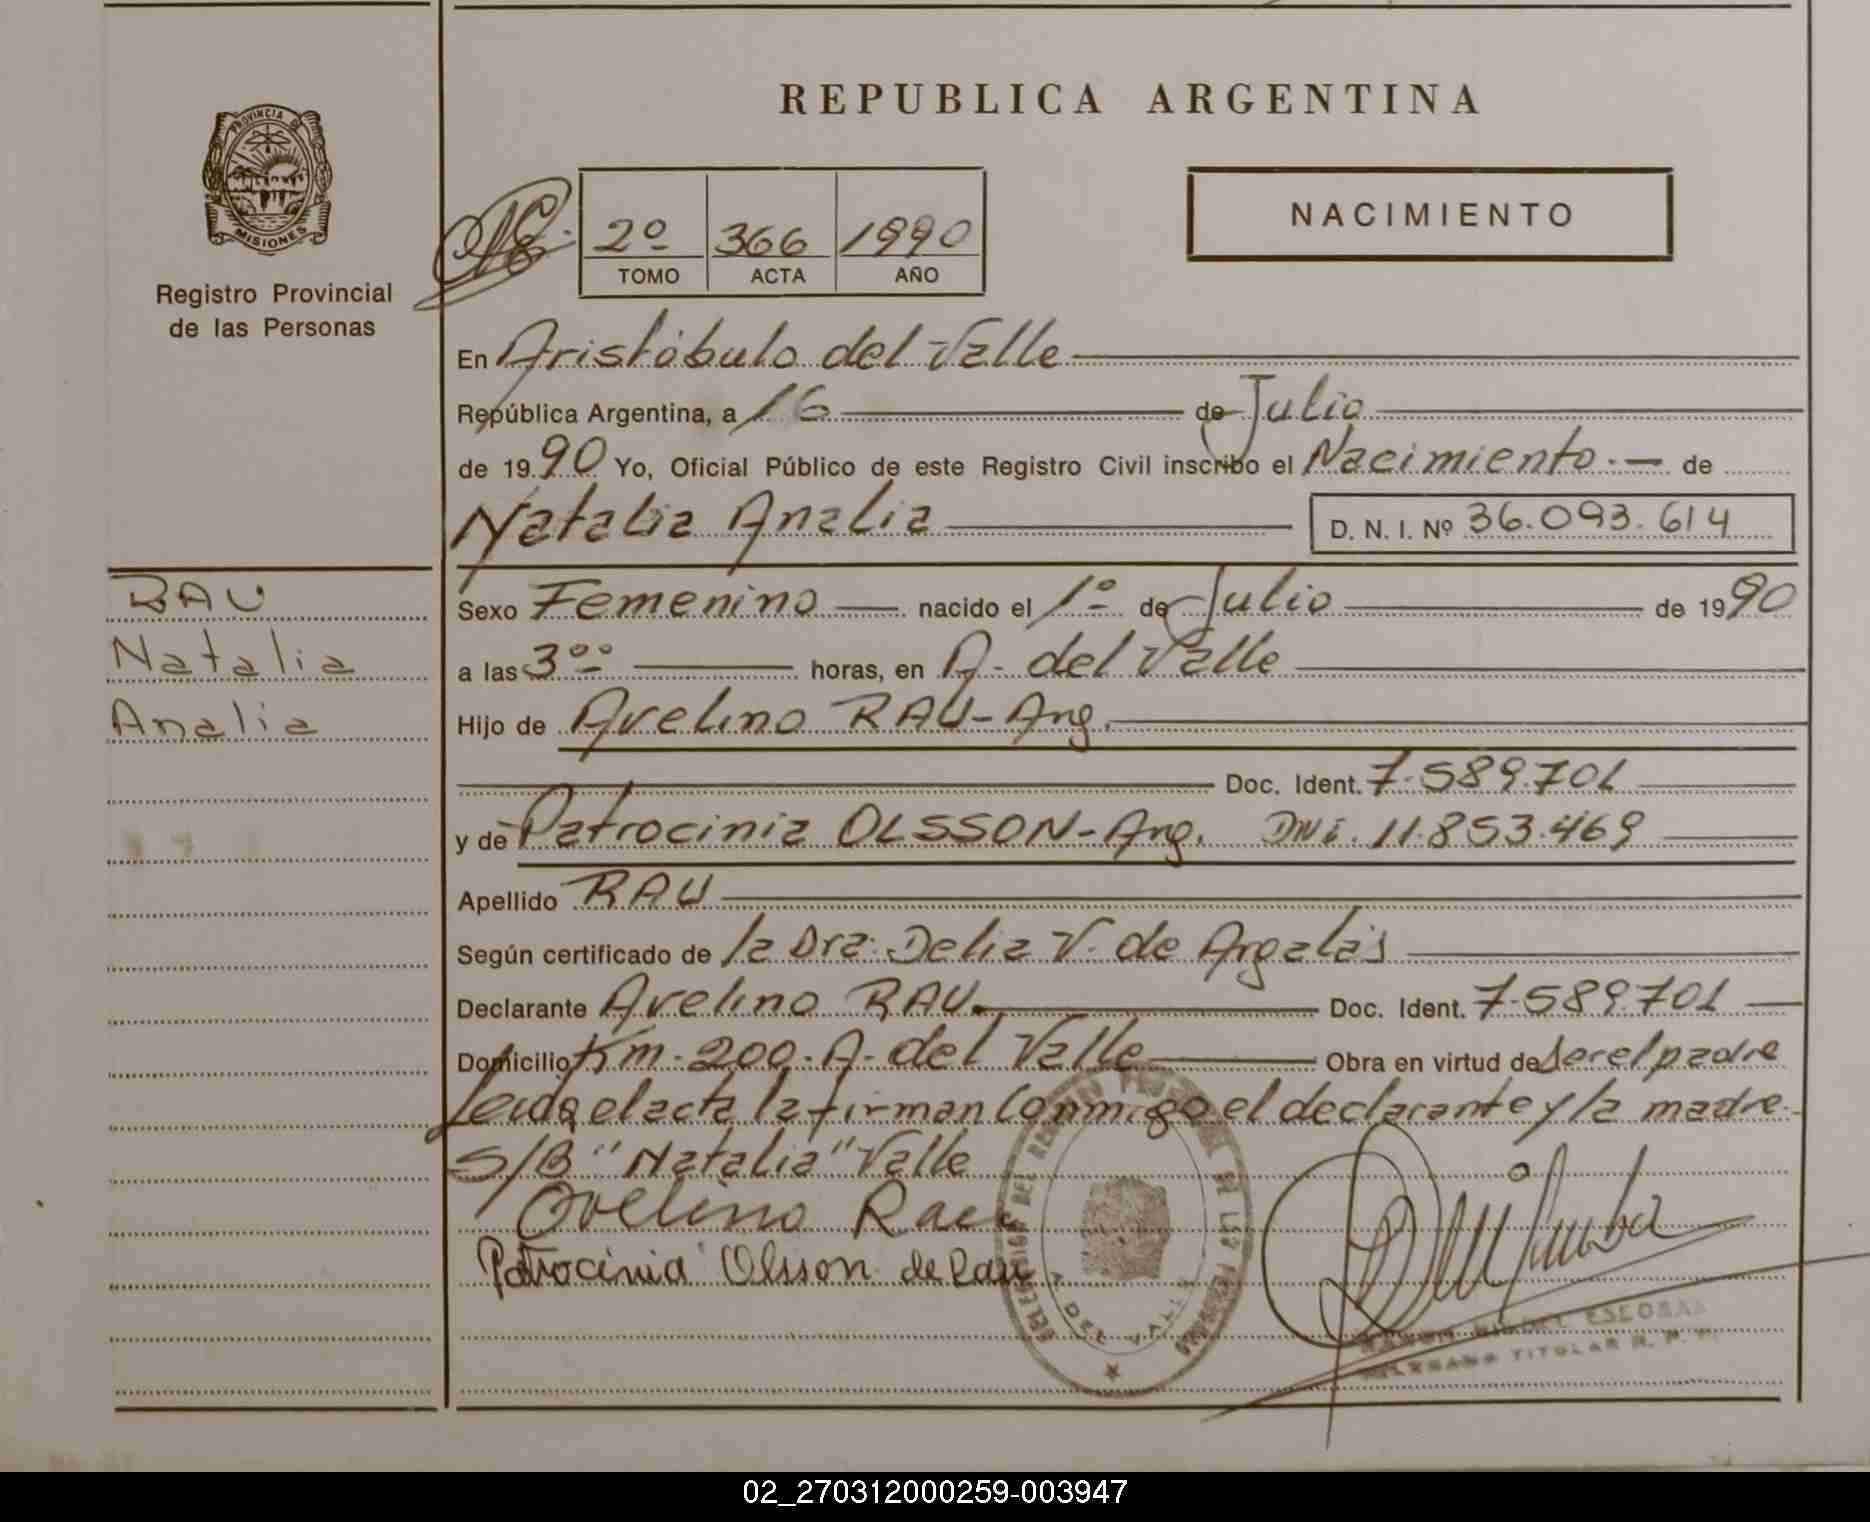 REPUBLICA ARGENTINA
PROVINCIA DE
MISIONES
Registro Provincial
de las Personas
2º 366 1990
TOMO ACTA AÑO
NACIMIENTO
En Aristóbulo del Valle
República Argentina, a 16 de Julio
de 1990 Yo, Oficial Público de este Registro Civil inscribo el Nacimiento.- de
Natalia Analia D. N. I. Nº 36.093.614
RAU
Natalia
Analia
Sexo Femenino nacido el 1º de Julio de 1990
a las 3ºº horas, en A. del Valle
Hijo de Avelino RAU-Arg.
Doc. Ident. 7.589.701
y de Patrocinia OLSSON-Arg. DNi. 11.853.469
Apellido RAU
Según certificado de la Dra. Delia V. de Argalás
Declarante Avelino RAU. Doc. Ident. 7.589701
Domicilio Km. 200. A. del Valle Obra en virtud de ser el padre
Leida el acta la firman conmigo el declarante y la madre.
S/B "Natalia" Valle
Ovelino Rau
Patrocinia Olsson de Rau
A. DEL VALLE
RAMON MIGUEL ESCOBAR
DELEGADO TITULAR R. P. P.
02_270312000259-003947